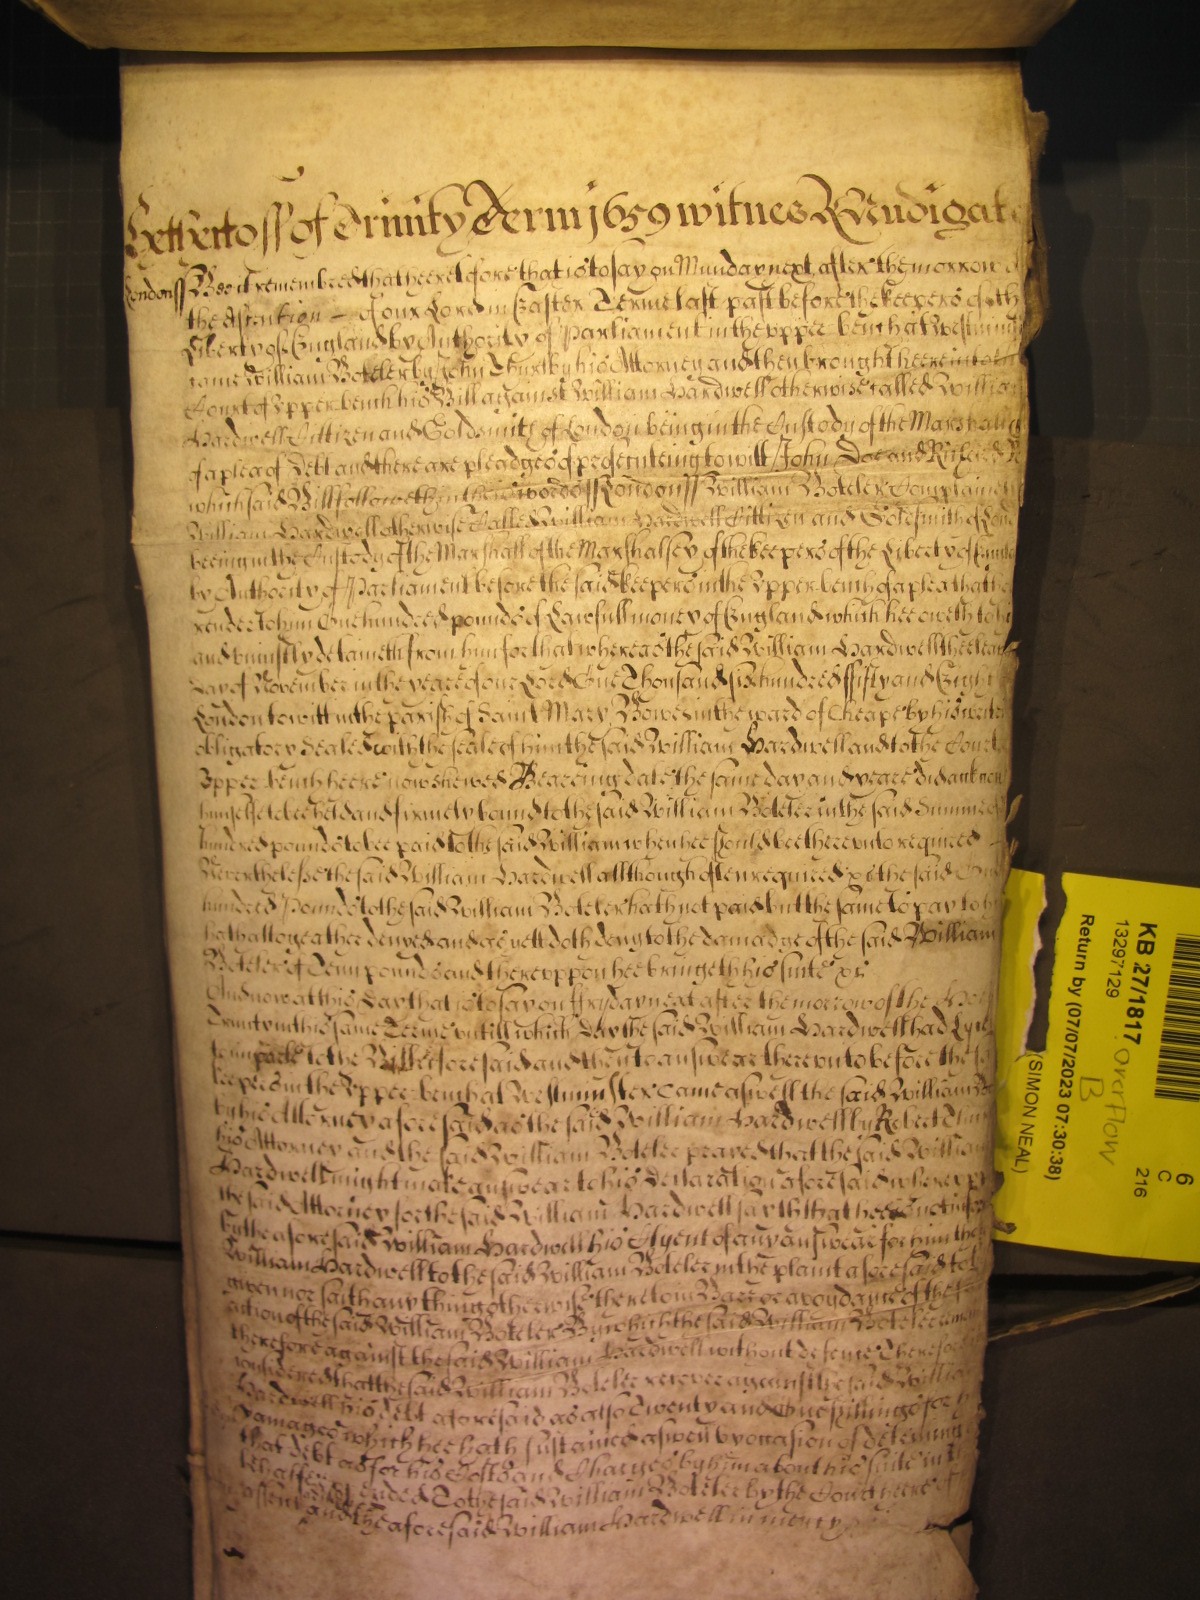 of Trinity Term 1659 witnes R Nudigate
London ss Bee it remembred that heeretofore that is to say on Munday next after the morrow
the Ascention of our Lord in Easter Terme last past before the keepers of th
Liberty of England by Authority of Parliament in the upper bench at Westmin
came William Boteler by John Thurlby his Attorney and then brought heere into
Court of Upper bench his Bill against William Hardwell otherwise called William
Hardwell Cittizen and Goldsmith of London being in the Custody of the Marshall
of a plea of Debt and there are pleadges of prosecuteing to witt John Doe and Richard R
which said Bill followeth in theis wordes ss London ss William Boteler Complaine
William Hardwell otherwise Called William Hardwell Cittizen and Goldsmith of Lond
beeing in the Custody of the Marshall of the Marshalsey of the keepers of the Liberty of Engla
by Authority of Parliament before the said keepers in the Upper bench of a plea that
render to him One hundred pounds of Lawfull money of England which hee oweth to hi
and uniustly detaineth from him for that whereas the said William Hardwell the
day of November in the yeare of our Lord One Thousand six hundred fifty and Eight
London to witt in the parish of Saint Mary Bowe in the ward of Cheape by his
obligatory sealed with the seale of him the said William Hardwell and to the Court
Upper bench heere now shewed Beareing date the same day and yeare did
himselfe to bee held and firmely bound to the said William Boteler in the said Summe
hundred pounds to bee paid to the said William when hee should bee thereunto required
Neverthelesse the said William Hardwell allthough often required &c the said One
hundred Pounds to the said William Boteler hath not paid but the same to pay to
hath altogeather denyed and as yett doth deny to the damadge of the said William
Boteler of Tenn pounds and thereuppon hee bringeth his suite &c
And now at this day that is to say on ffryday next after the morrow of the
Trinity in this same Terme untill which day the said William Hardwell had
to imparle to the Bill aforesaid and then to answear thereunto before the
keepers in the Upper bench at Westminster came aswell the said William
by his Attorney aforesaid as the said William Hardwell by Robert
his Attorney and the said William Boteler prayed that the said William
Hardwell might make answear to his declaration aforesaid
the said Attorney for the said William Hardwell sayth that hee is not
by the aforesaid William Hardwell his Clyent of any answear for him the
William Hardwell to the said William Boteler in the plaint aforesaid to
given nor saith any thing otherwise there to in Barr or avoydance of the
action of the said William Boteler By which the said William Boteler
therefore against the said William Hardwell without defence Therefore
considered that the said William Boteler recover against the said William
Hardwell his debt aforesaid as also Twenty and One shillings for
damages which hee hath sustained aswell by occasion of deteining
that debt as for his Costs and Charges by him about his suite in
behalfe expended To the said William Boteler by the Court heere of
assent and the aforesaid William Hardwell in mercy
KB 27/1817
13297129
Return by (07/07/2023 07:30:38)
(SIMON NEAL)
Overflow
B
6
C
216